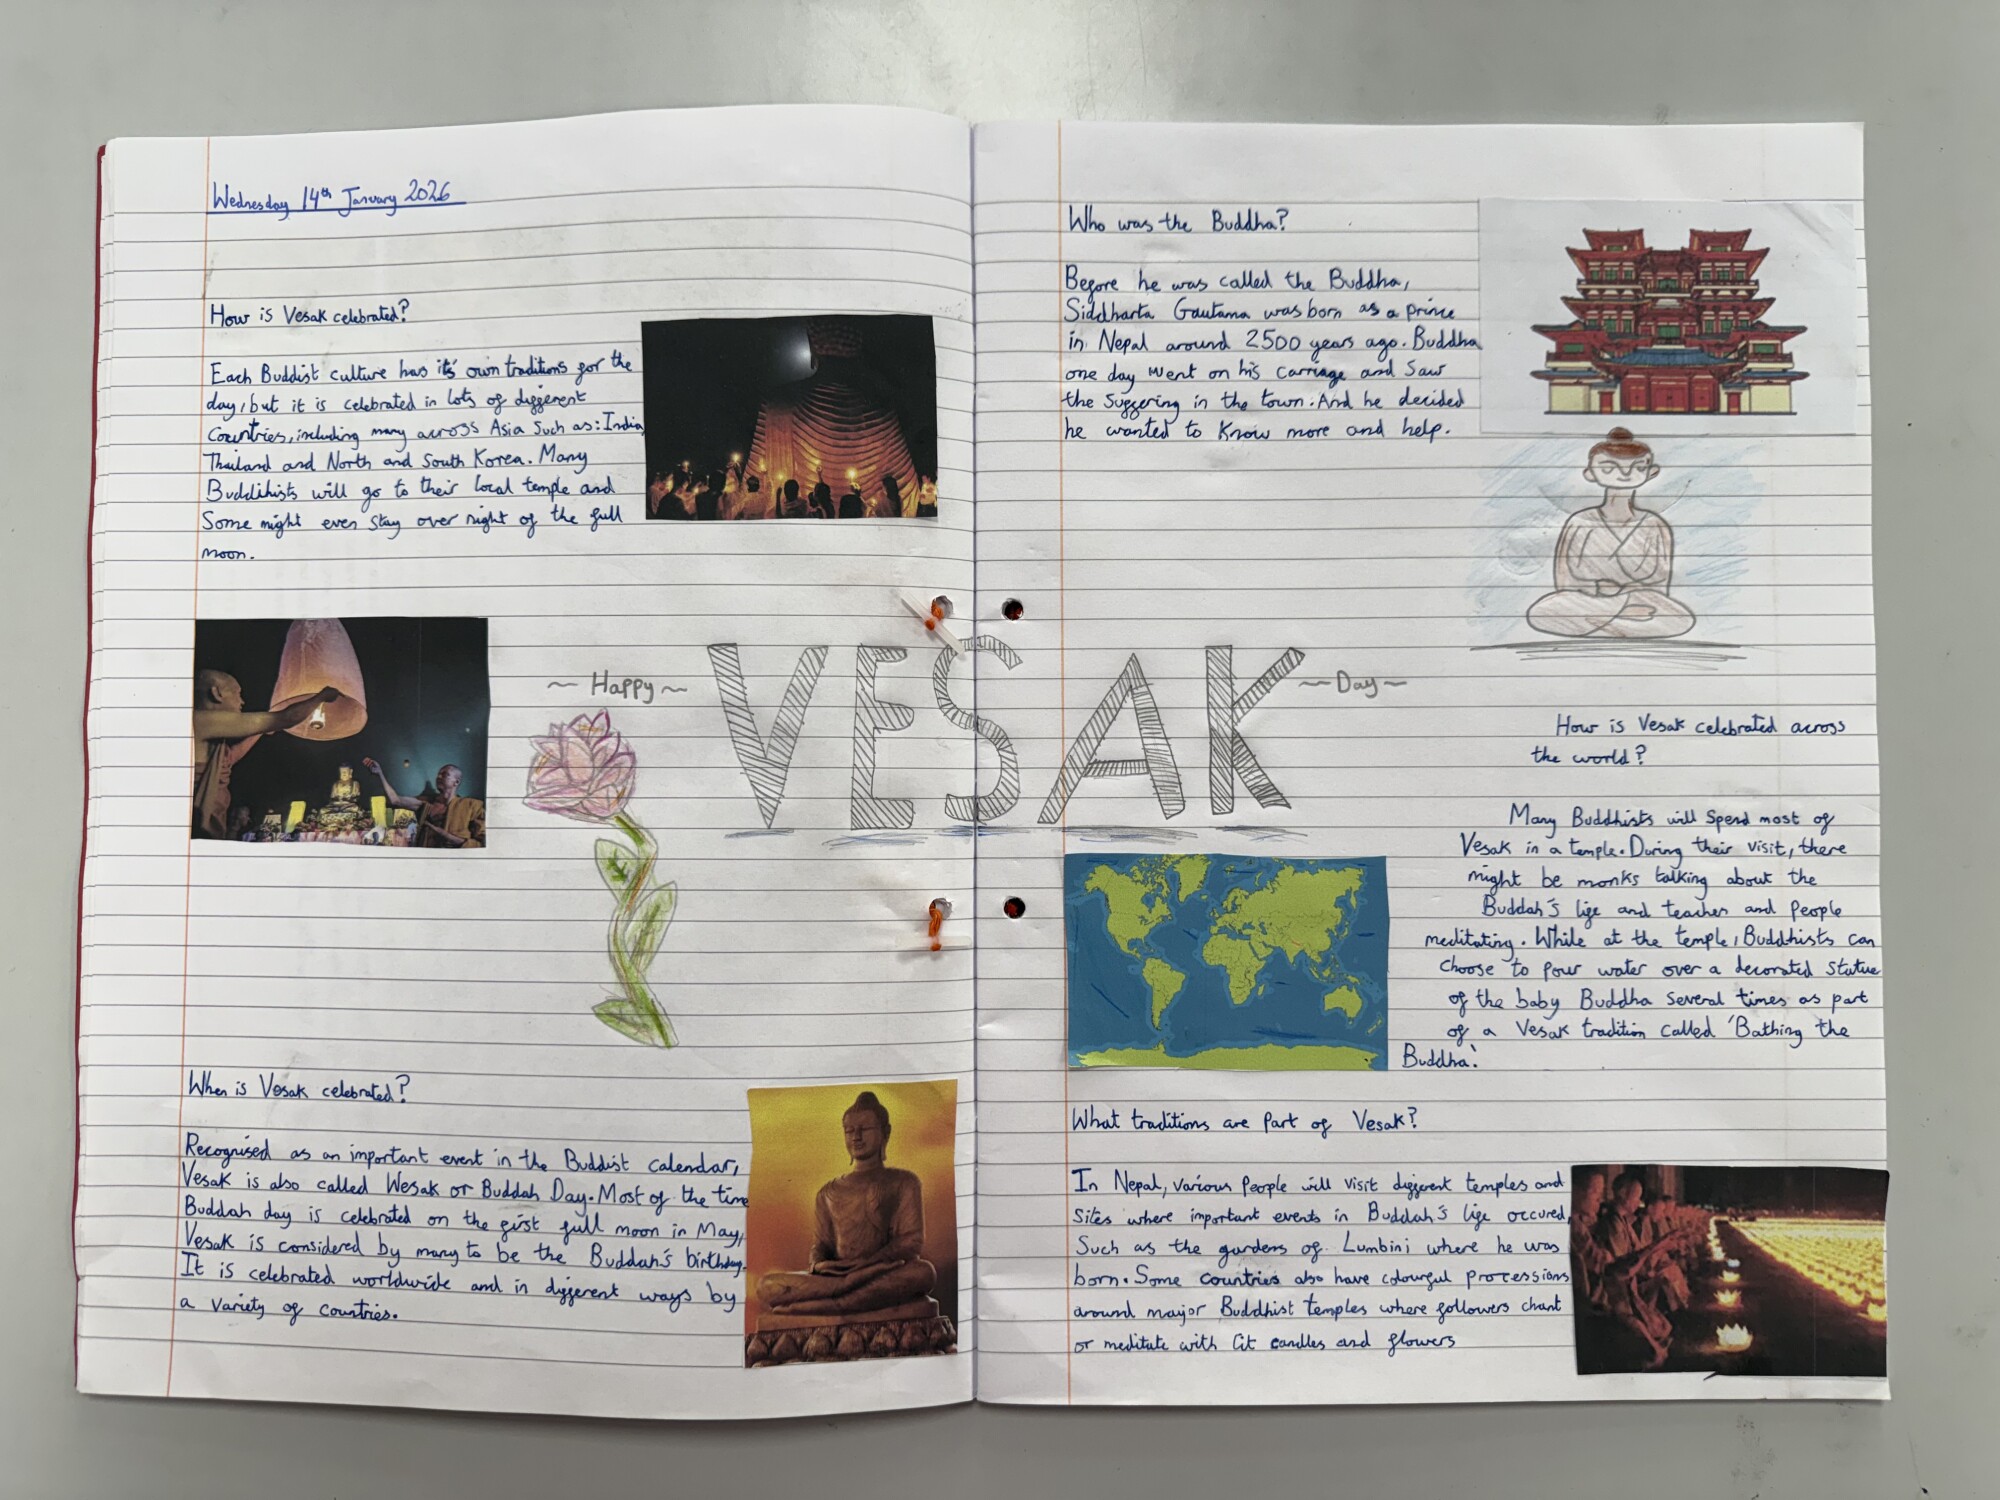 Wednesday 14th January 2026
How is Vesak celebrated?
Each Buddist culture has it's own traditions for the
day, but it is celebrated in lots of different
countries, including many across Asia such as: India,
Thailand and North and South Korea. Many
Buddihists will go to their local temple and
Some might even stay over night of the full
moon.
~ Happy ~
VESAK
~ Day ~
When is Vesak celebrated?
Recognised as an important event in the Buddist calendar,
Vesak is also called Wesak or Buddah Day. Most of the time
Buddah day is celebrated on the first full moon in May,
Vesak is considered by many to be the Buddah's birthday.
It is celebrated worldwide and in different ways by
a variety of countries.
Who was the Buddha?
Before he was called the Buddha,
Siddharta Gautama was born as a prince
in Nepal around 2500 years ago. Buddha
one day went on his carriage and saw
the suffering in the town. And he decided
he wanted to know more and help.
How is Vesak celebrated across
the world?
Many Buddhists will spend most of
Vesak in a temple. During their visit, there
might be monks talking about the
Buddah's life and teaches and people
meditating. While at the temple, Buddhists can
choose to pour water over a decorated statue
of the baby Buddha several times as part
of a Vesak tradition called 'Bathing the
Buddha'.
What traditions are part of Vesak?
In Nepal, various people will visit different temples and
sites where important events in Buddah's life occured,
Such as the gardens of Lumbini where he was
born. Some countries also have colourful processions
around mayjor Buddhist temples where followers chant
or meditate with lit candles and flowers